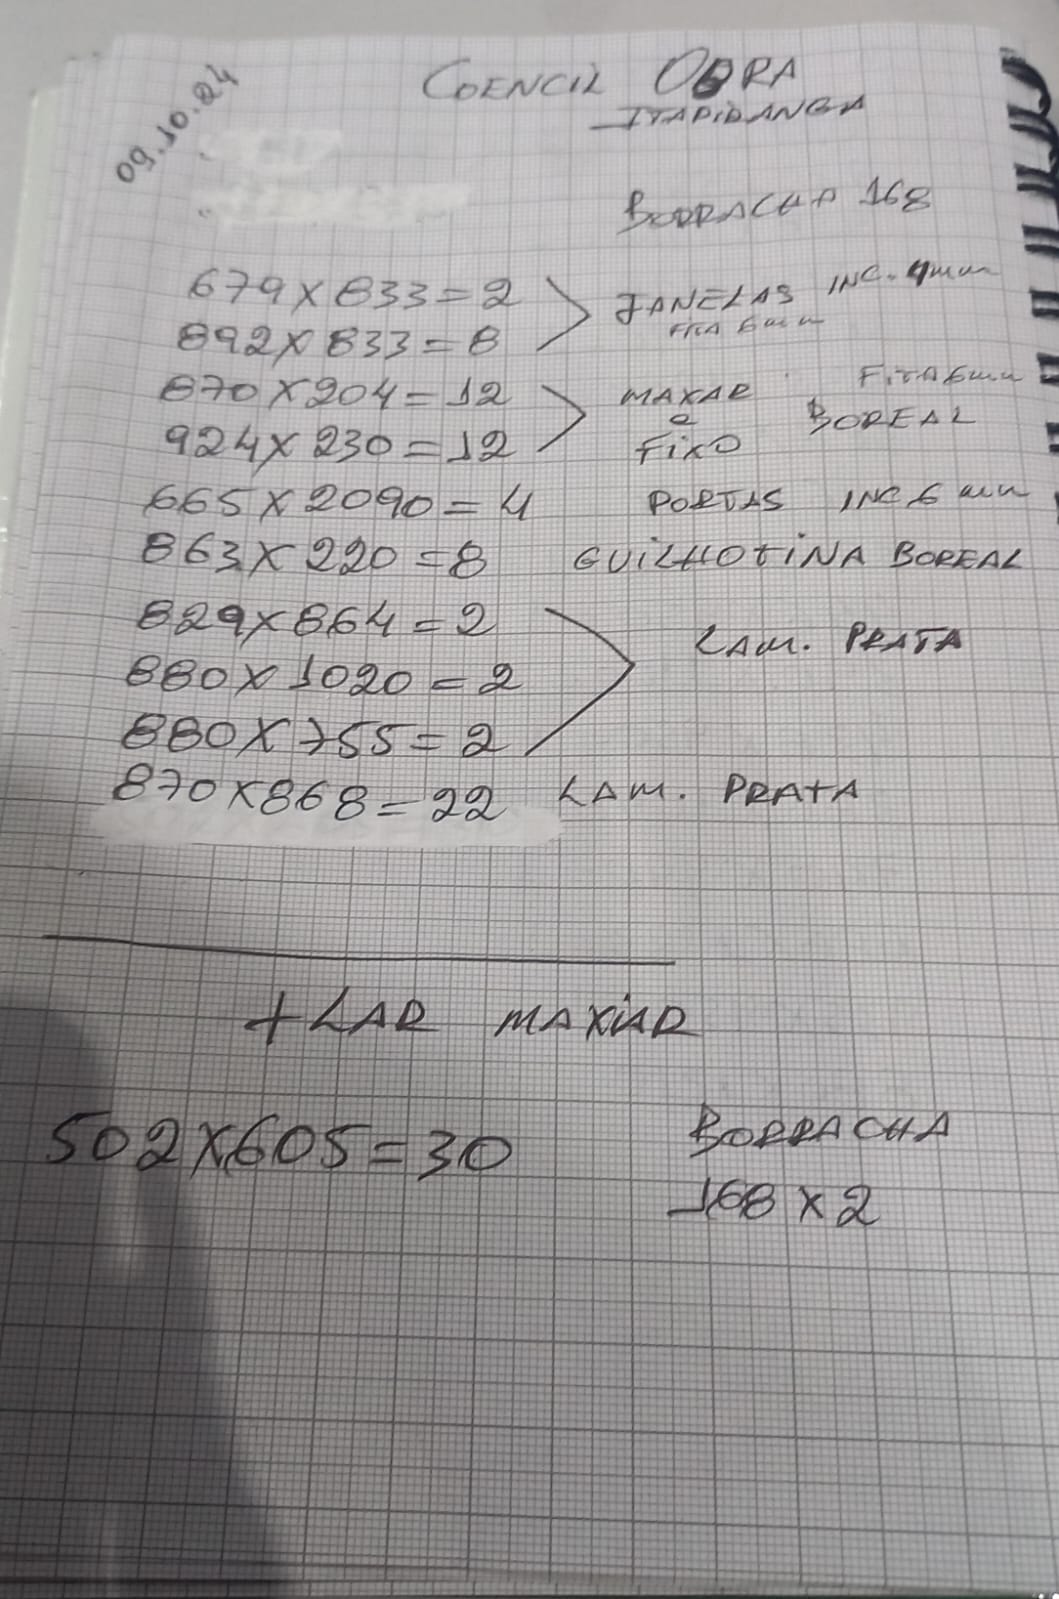 09.10.24
COENCIL OBRA
ITAPIRANGA
BORRACHA 168
679X833=2
892X833=8
JANELAS INC. 4mm
FITA 6mm
870X204=12
924X230=12
MAXAR FITA 6mm
e BOREAL
FIXO
665X2090=4 PORTAS INC 6 mm
863X220=8 GUILHOTINA BOREAL
829X864=2
880X1020=2
880X755=2
LAM. PRATA
870X868=22 LAM. PRATA
+LAR MAXIAR
502X605=30 BORRACHA
168 X 2